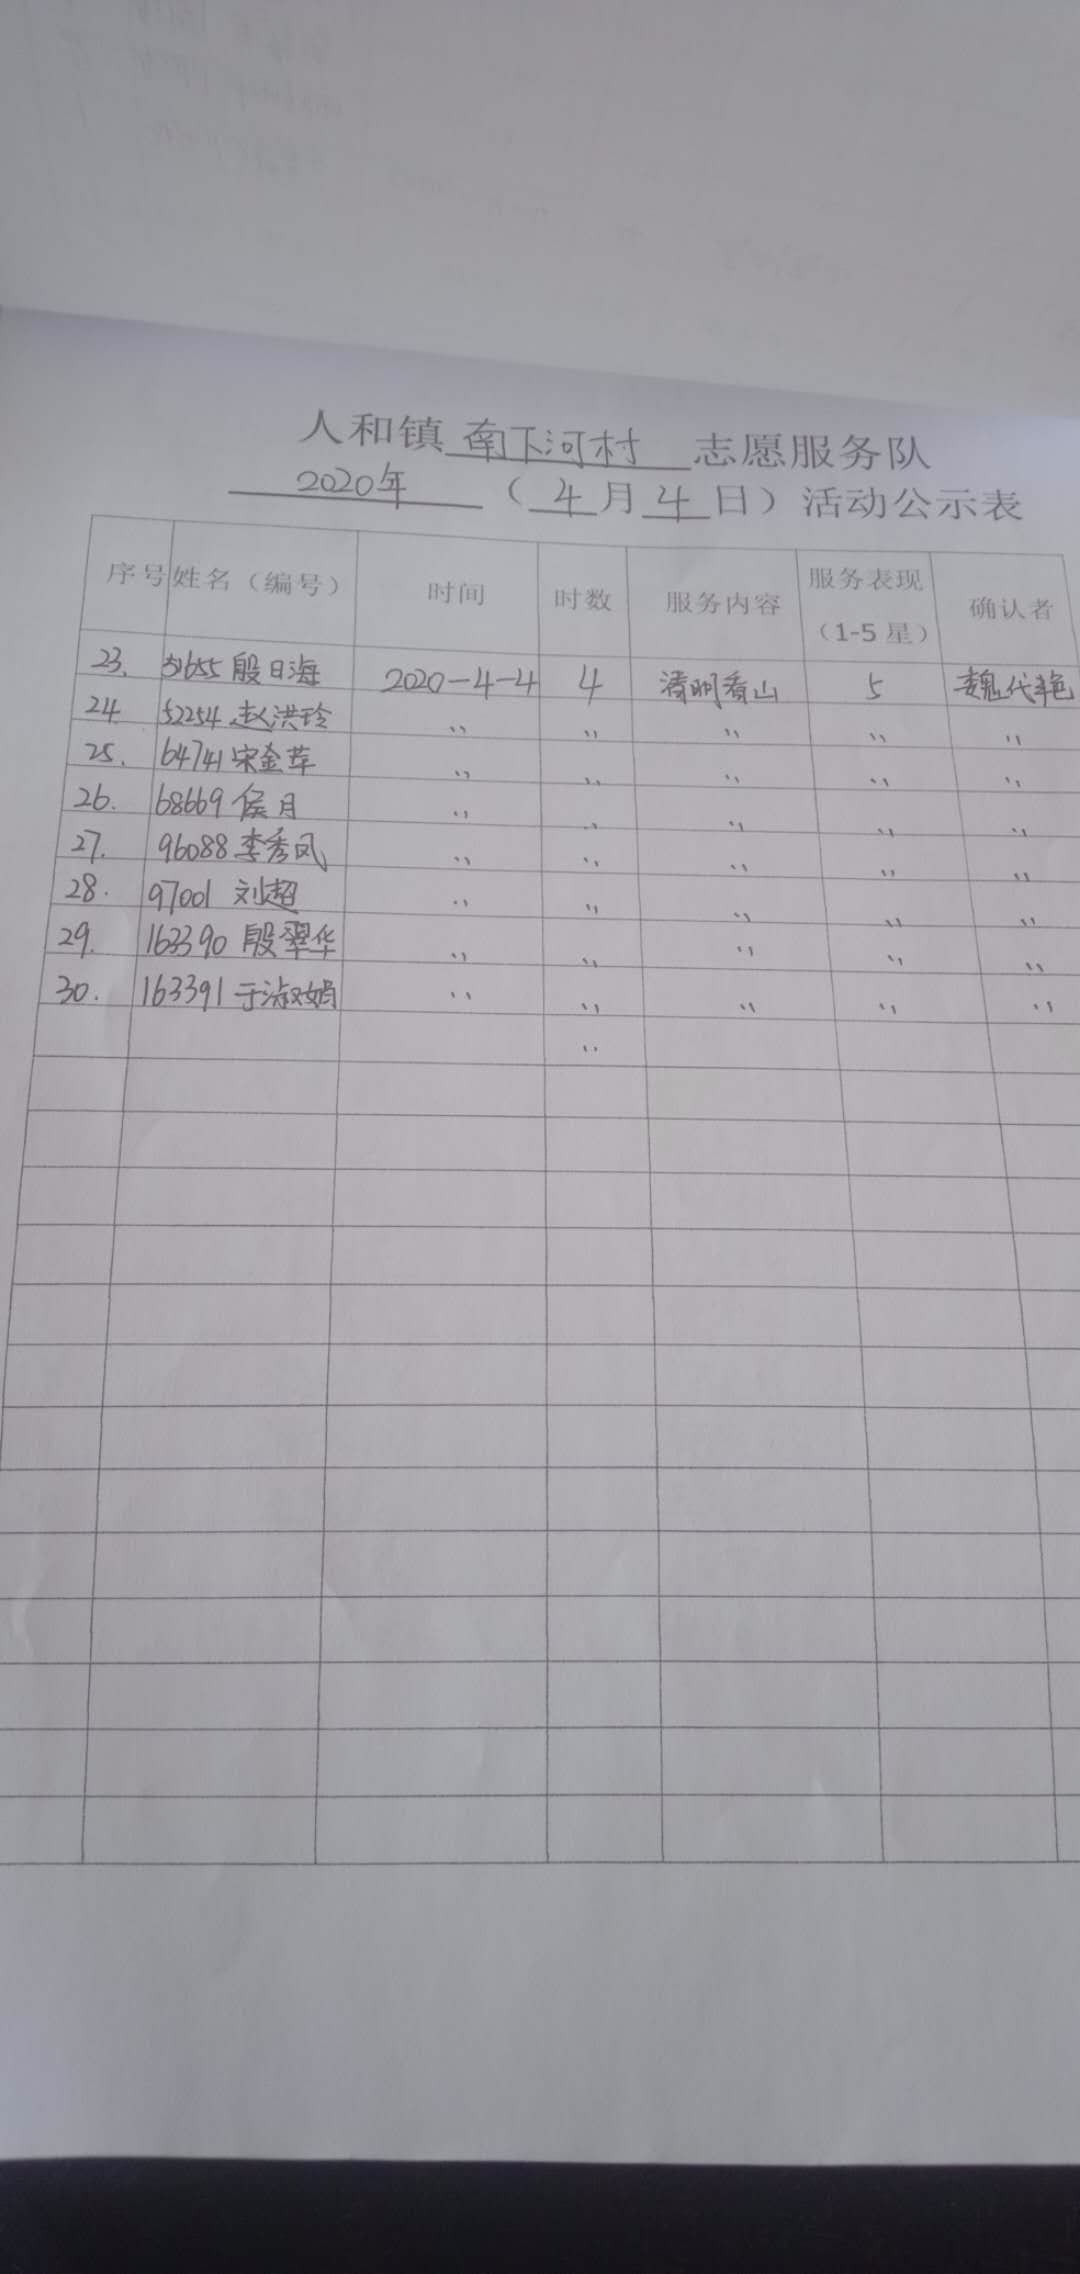 人和镇 南下河村 志愿服务队
2020年 （4月4日）活动公示表
序号 姓名（编号） 时间 时数 服务内容 服务表现（1-5星） 确认者
23. 51655 殷日海 2020-4-4 4 清明看山 5 魏代艳
24 52254 赵洪玲 〃 〃 〃 〃 〃
25. 64741 宋金苹 〃 〃 〃 〃 〃
26. 68669 侯月 〃 〃 〃 〃 〃
27. 96088 李秀凤 〃 〃 〃 〃 〃
28. 97001 刘超 〃 〃 〃 〃 〃
29. 163390 殷翠华 〃 〃 〃 〃 〃
30. 163391 于淑娟 〃 〃 〃 〃 〃
〃